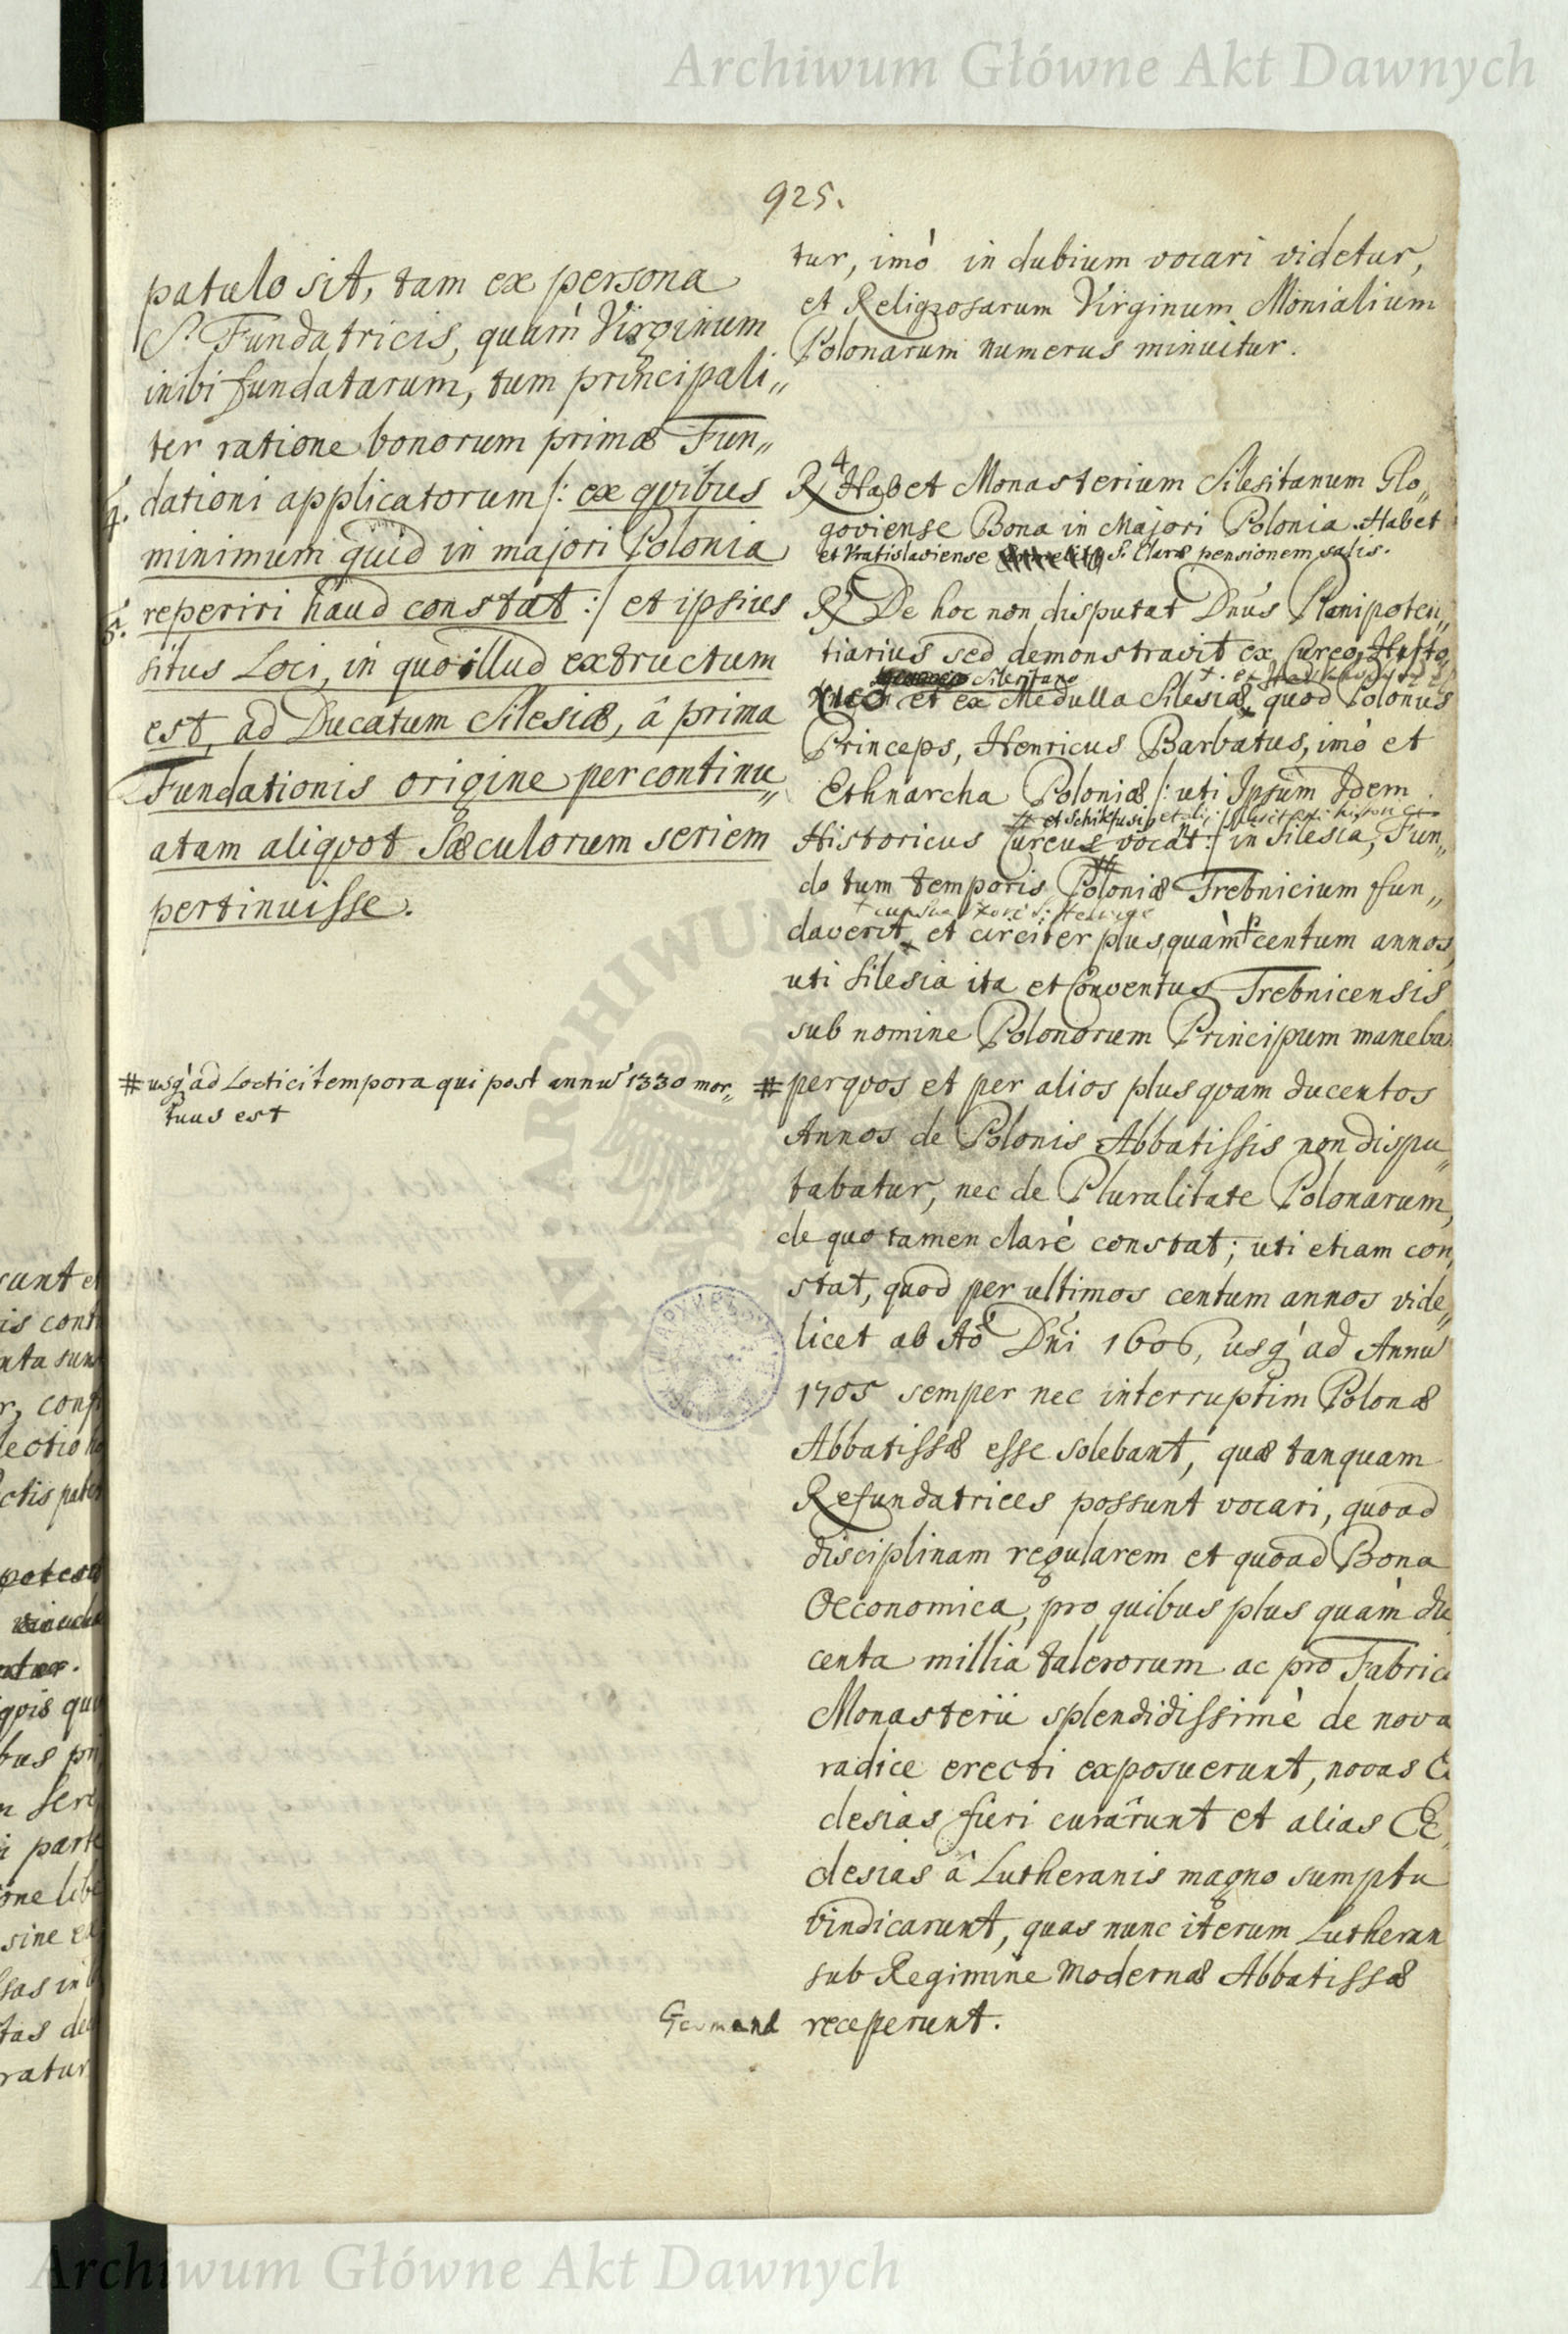 Archiwum Główne Akt Dawnych
925.
patulo sit, tam ex persona
S. Fundatricis, quàm Virginum
inibi fundatarum, tum principali„
ter ratione bonorum primæ Fun„
4. dationi applicatorum /: ex quibus
minimum quid in majori Polonia
5. reperiri haud constat :/ et ipsius
situs Loci, in quo illud extructum
est, ad Ducatum Silesiæ, â prima
Fundationis origine per continu„
atam aliquot Sæculorum seriem
pertinuisse.
# usq' ad Loctici tempora qui post annū 1330 mor„
tuus est
tur, imò in dubium vocari videtur,
et Religiosarum Virginum Monialium
Polonarum numerus minuitur.
R 4 Habet Monasterium Silesitanum Glo„
goviense Bona in Majori Polonia. Habet
et Vratislaviense S. Claræ pensionem salis.
R 5 De hoc non disputat Dnūs Plenipoten„
tiarius sed demonstravit ex Cureo, Histo„
Silesitano
rico et ex Medulla Silesiæ, quod Polonus
Princeps, Henricus Barbatus, imò et
Ethnarcha Poloniæ /: uti Ipsum Idem
et Schikfusig et alii
Historicus Cureus vocat :/ in Silesia, Fun„
do tum temporis Poloniæ Trebnicium fun„
cum sua Uxore S. Hedvige
daverit, et circiter plus quàm centum annos,
uti Silesia ita et Conventus Trebnicensis
sub nomine Polonorum Principum maneba
# per quos et per alios plus quam ducentos
Annos de Polonis Abbatissis non dispu„
tabatur, nec de Pluralitate Polonarum,
de quo tamen clarè constat; uti etiam con„
stat, quod per ultimos centum annos vide„
licet ab Aō Dni 1606, usq' ad Annū
1705 semper nec interruptim Polonæ
Abbatissæ esse solebant, quæ tanquam
Refundatrices possunt vocari, quoad
disciplinam regularem et quoad Bona
Oeconomica, pro quibus plus quàm du
centa millia talerorum ac pro Fabrica
Monasterii splendidissimè de nova
radice erecti exposuerunt, novas Ec
clesias fieri curârunt et alias Ec„
clesias â Lutheranis magno sumptu
vindicarunt, quas nunc iterum Lutheran
sub Regimine Modernæ Abbatissæ
receperunt.
Archiwum Główne Akt Dawnych